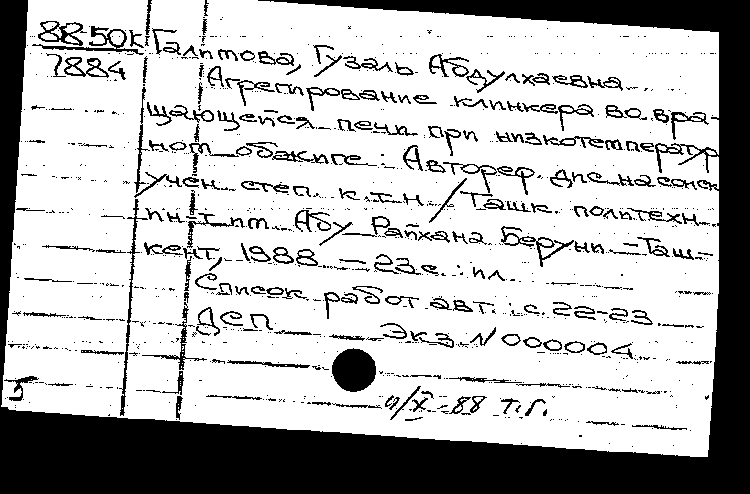 8850к Галимова, Гузаль Абдулхаевна
7884
Агрегирование клинкера во вра-
щающейся печи при низкотемператур
ном обжиге : Автореф. дис на соиск
учен степ. к.т.н / Ташк. политехн
ин-т им Абу Райхана Беруни - Таш-
кент, 1988 - 23 с. : ил.
Список работ авт. : с. 22-23
ДСП Экз N 000004
5
/X - 88 Т.Г.